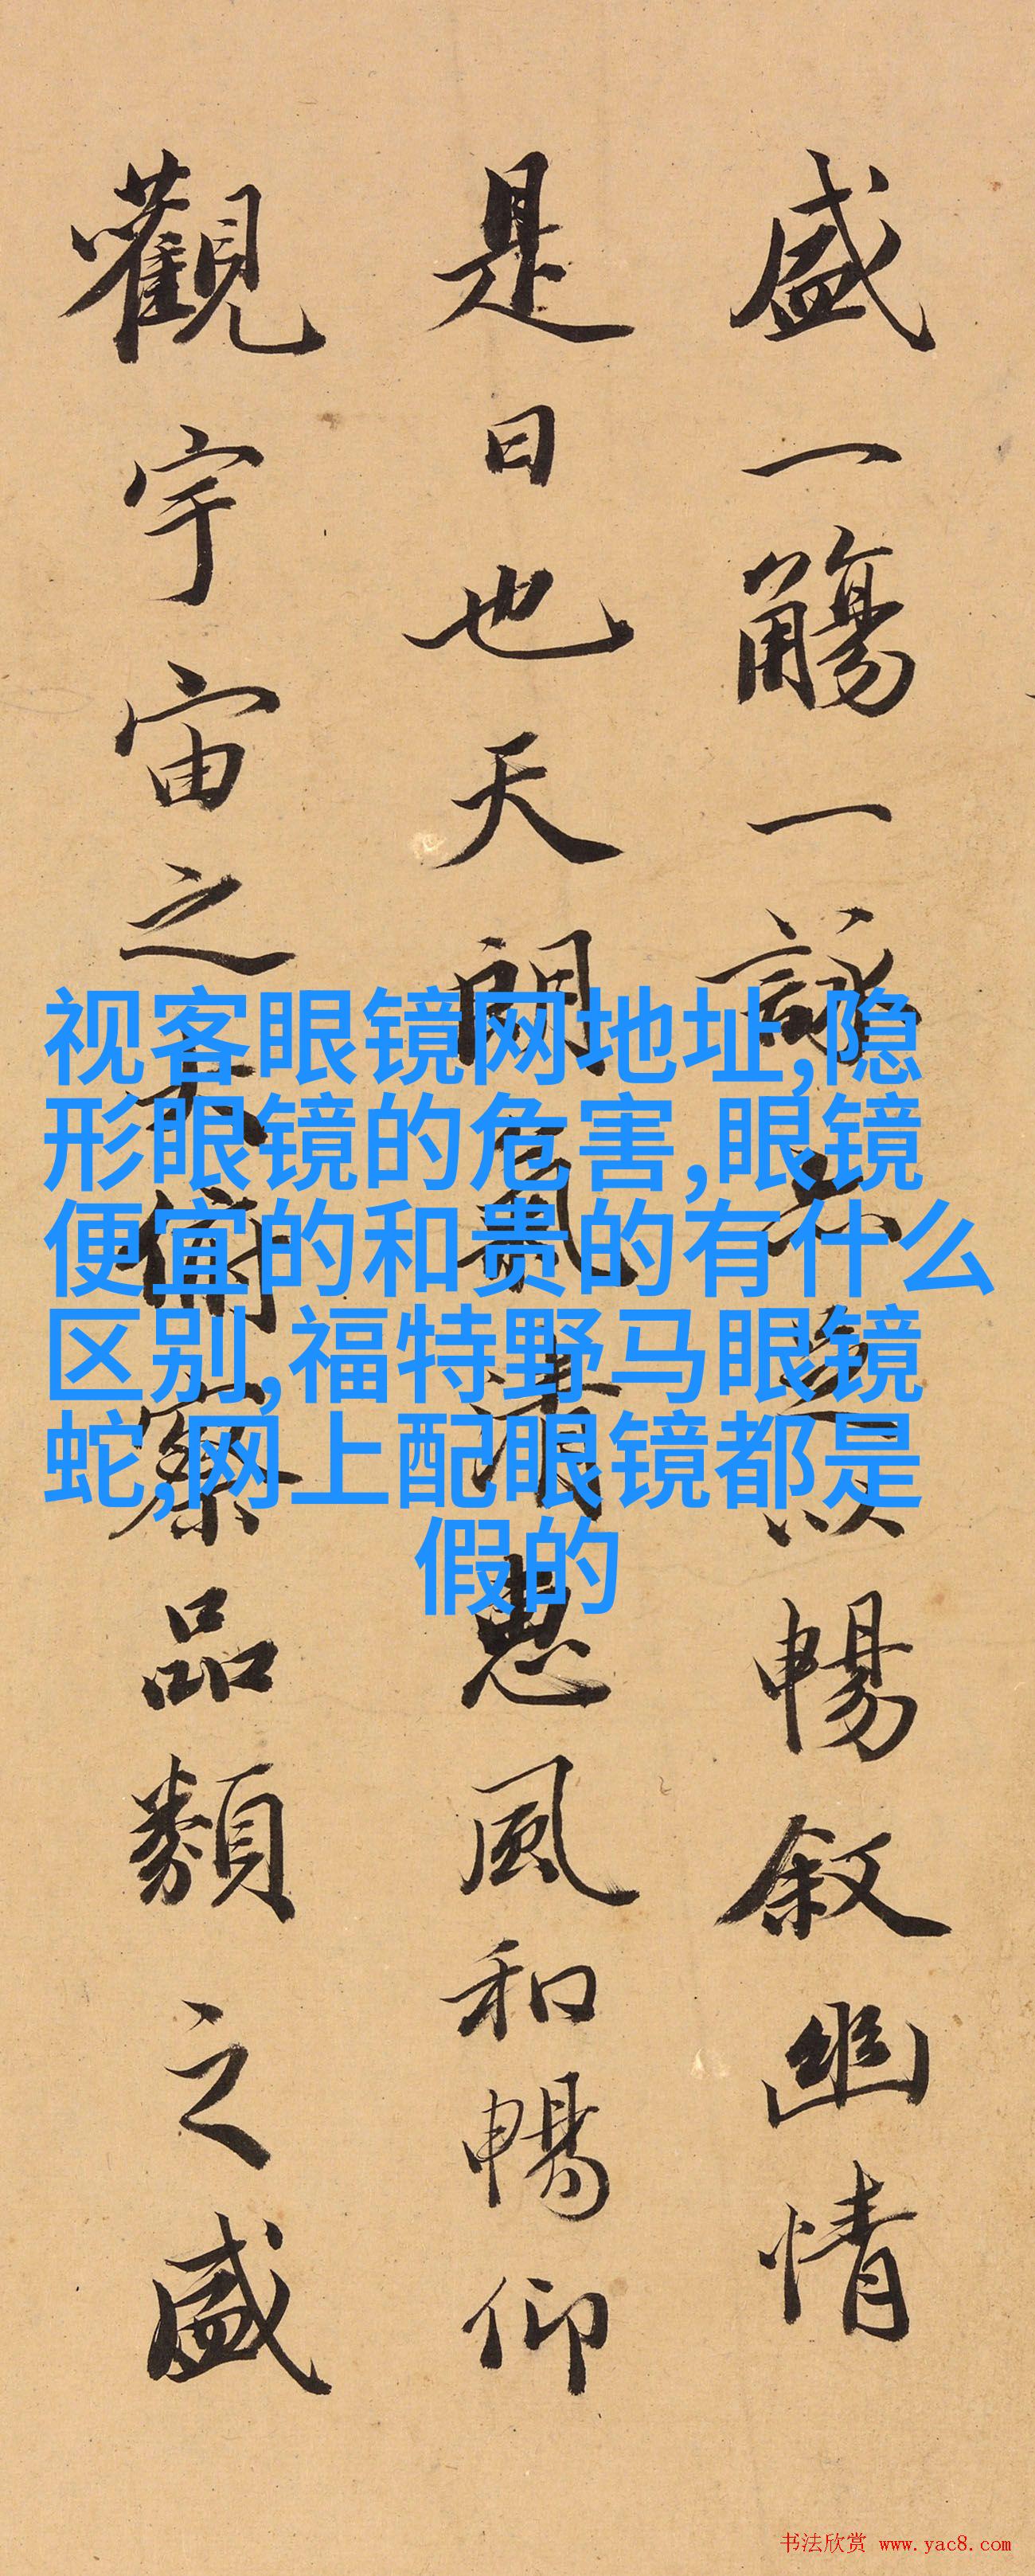 盛一觴一詠亦足以暢叙幽情
是日也天朗氣清惠風和暢仰
觀宇宙之大俯察品類之盛
视客眼镜网地址,隐
形眼镜的危害,眼镜
便宜的和贵的有什么
区别,福特野马眼镜
蛇,网上配眼镜都是
假的
书法欣赏 www.yac8.com